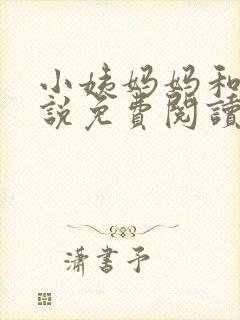 小姨妈妈和
說免費閱讀
瀟書予